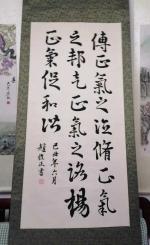 傳正氣之法脩正氣
之邦走正氣之路楊
正氣促和谐
己丑年六月